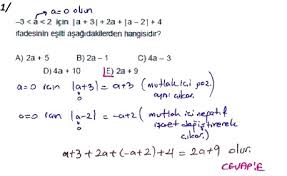 1/
→ a=0 olsun
-3 < a < 2 için |a + 3| + 2a + |a – 2| + 4
ifadesinin eşiti aşağıdakilerden hangisidir?
A) 2a + 5 B) 2a – 1 C) 4a – 3
D) 4a + 10 E) 2a + 9
a=0 için |a+3| = a+3 (mutlak içi poz. aynı çıkar.
a=0 için |a-2| = -a+2 (mutlak içi negatif işaret değiştirerek çıkar.)
a+3+2a+(-a+2)+4 = 2a+9 olur.
CEVAP: E